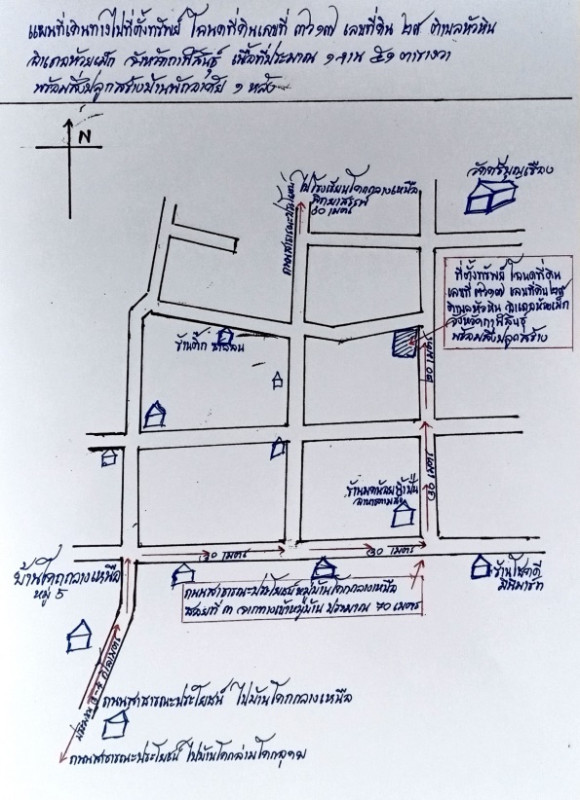 แผนที่เดินทางไปที่ตั้งทรัพย์ โฉนดที่ดินเลขที่ ๓๖๑๗ เลขที่ดิน ๒๕ ตำบลหัวหิน
อำเภอห้วยเม็ก จังหวัดกาฬสินธุ์ เนื้อที่ประมาณ ๑ งาน ๕๑ ตารางวา
พร้อมสิ่งปลูกสร้างบ้านพักอาศัย ๑ หลัง
N
วัดศรีบุญเรือง
ไปโรงเรียนโคกกลางเหนือ
พิทยาสรรพ์
60 เมตร
ถนนสาธารณะประโยชน์
ที่ตั้งทรัพย์ โฉนดที่ดิน
เลขที่ ๓๖๑๗ เลขที่ดิน ๒๕
ตำบลหัวหิน อำเภอห้วยเม็ก
จังหวัดกาฬสินธุ์
พร้อมสิ่งปลูกสร้าง
ร้านตี๋ก
เมตร
เมตร
130 เมตร
30 เมตร
บ้านโคกกลางเหนือ
หมู่ 5
ร้านโชคดี
มินิมาร์ท
ถนนสาธารณะประโยชน์หมู่บ้านโคกกลางเหนือ
สายที่ ๓ จากทางเข้าหมู่บ้าน ประมาณ 70 เมตร
ประมาณ ๓-๔ กิโลเมตร
ถนนสาธารณะประโยชน์ ไปบ้านโคกกลางเหนือ
ถนนสาธารณะประโยชน์ ไปบ้าน